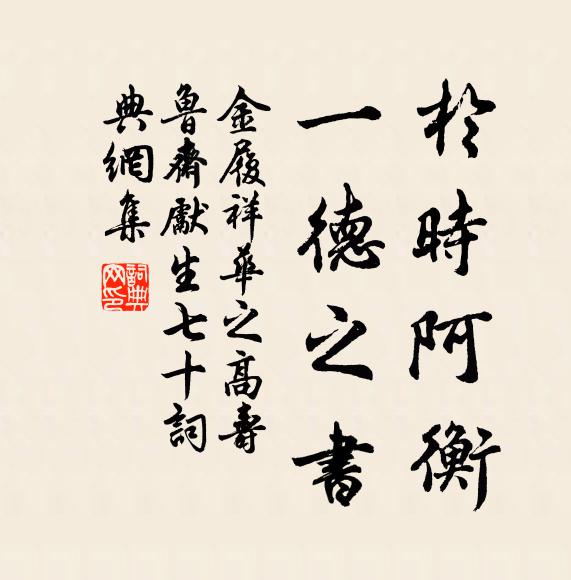 於時阿衡
一德之書
金履祥華之高壽
魯齋獻生七十詞
典網集
詞典网印